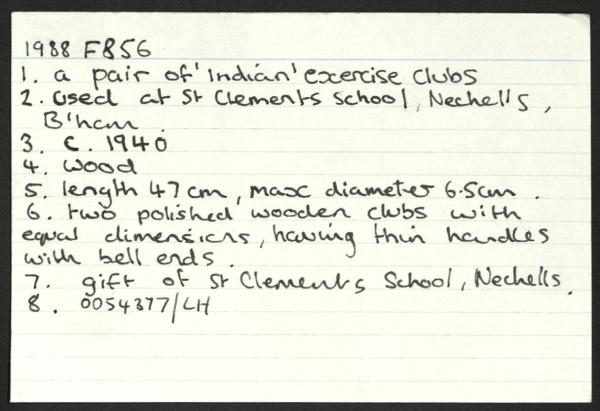 1988 F856
1. a pair of 'Indian' exercise clubs
2. used at St Clements School, Nechells,
B'ham.
3. c. 1940
4. wood
5. length 47cm, max diameter 6.5cm.
6. two polished wooden clubs with
equal dimensions, having thin handles
with bell ends.
7. gift of St Clements School, Nechells.
8. 0054377/LH